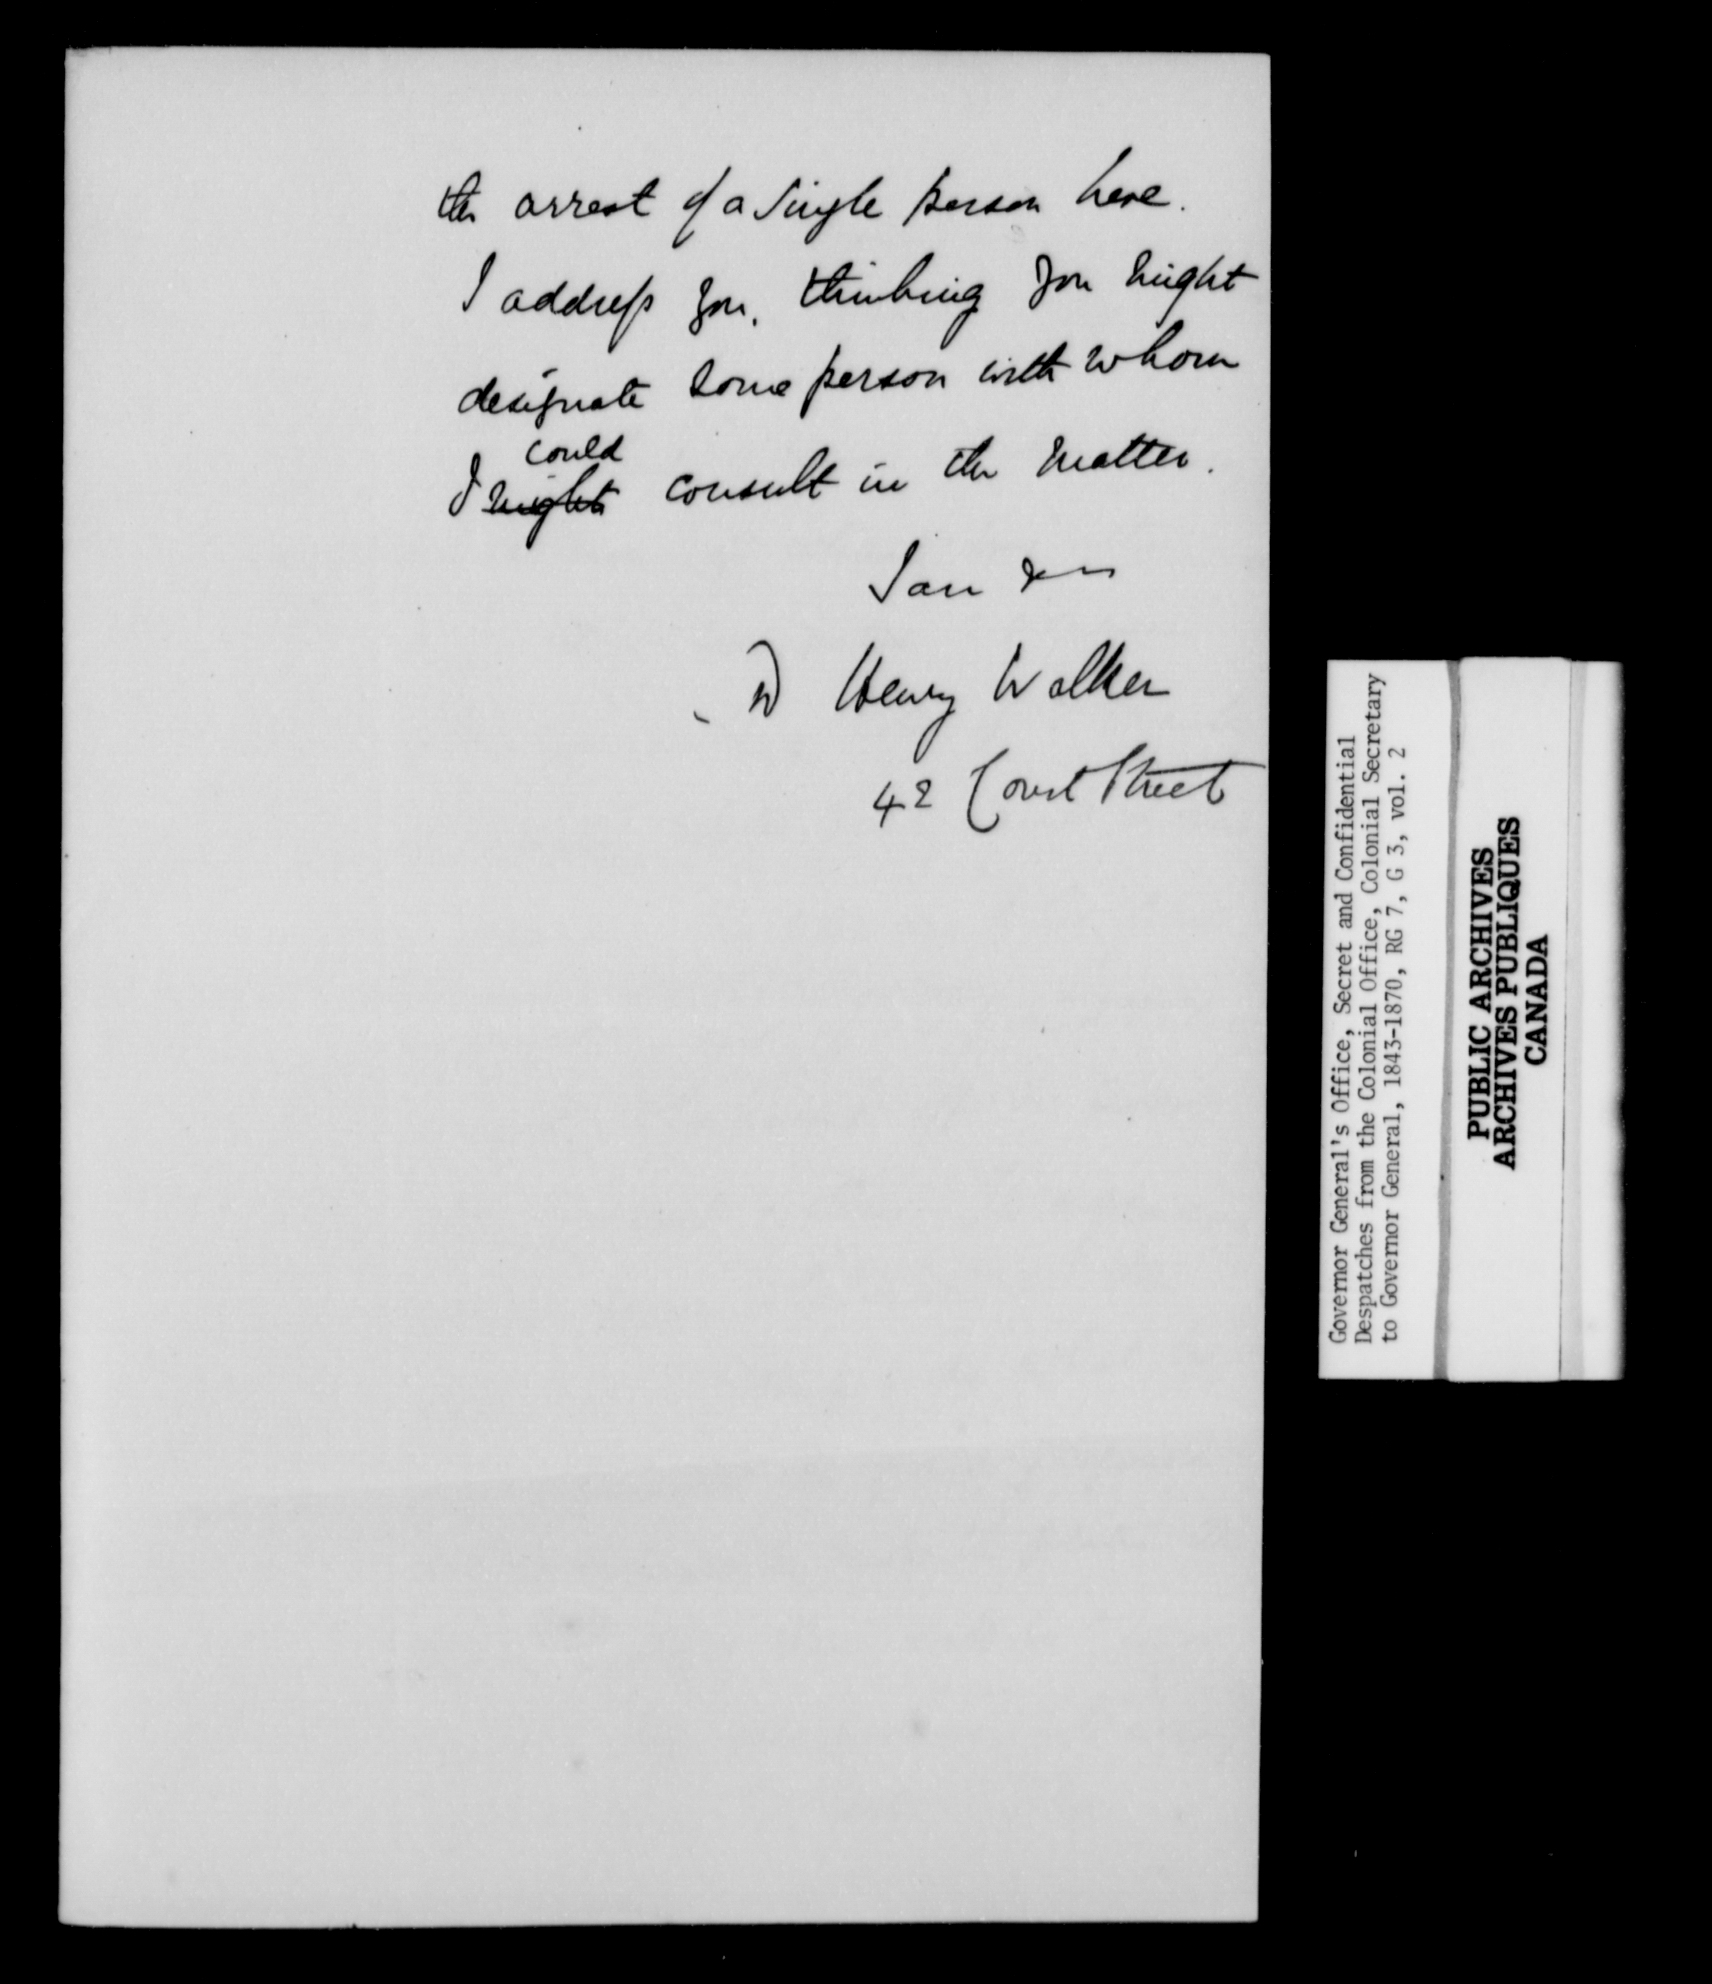 the arrest of a single person here.
I address you, thinking you might
designate some person with whom
could
I might consult in the matter.
I am &c
Henry Walker
42 Court Street
Governor General's Office, Secret and Confidential
Despatches from the Colonial Office, Colonial Secretary
to Governor General, 1843-1870, RG 7, G 3, vol. 2
PUBLIC ARCHIVES
ARCHIVES PUBLIQUES
CANADA